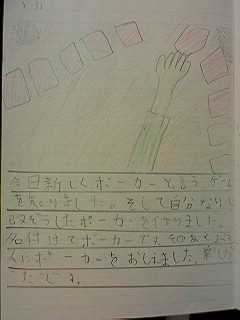 今日新しくポーカーと言うゲーム
を知りました。そして自分なりに
改ぞうしたポーカーを作りました。
名付けてポーカーです。その友と
人にポーカーをおしえました。楽しか
たです。